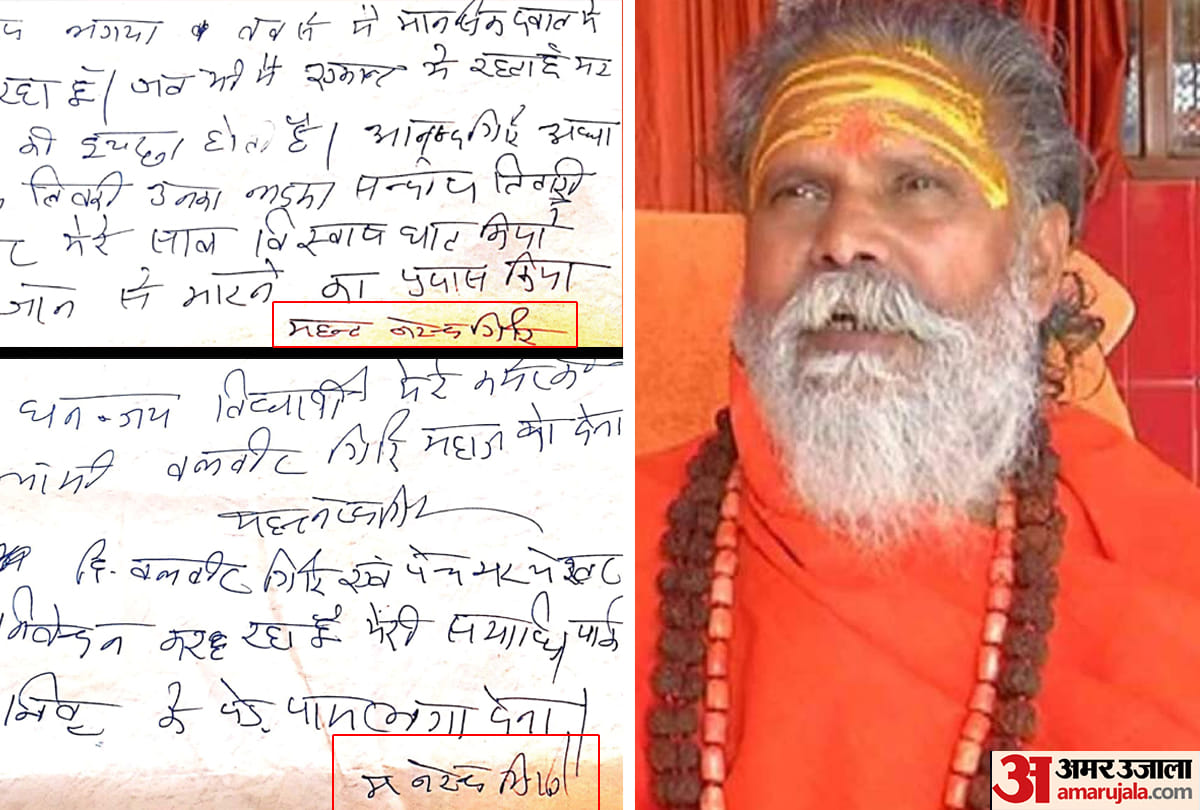 लगाया
मानसिक दबाव में
रहा हूँ। जब भी मैं एकान्त में रहता हूँ मर
की इच्छा होती है। आनन्द गिरि अध्या
तिवारी उनका लड़का सन्दीप तिवारी
मेरे साथ विस्वासघात किया
जान से मारने का प्रयास किया
महन्त नरेन्द्र गिरि
धनन्जय विद्यार्थी मेरे कमरे
बलवीर गिरि महाराज को देना
बलवीर गिरि एवं पंच परमेश्वर
निवेदन कर रहा हूँ मेरी समाधि पार्क
निबू के पेड़ पास लगा देना
म नरेन्द्र गिरि
अमर उजाला
amarujala.com